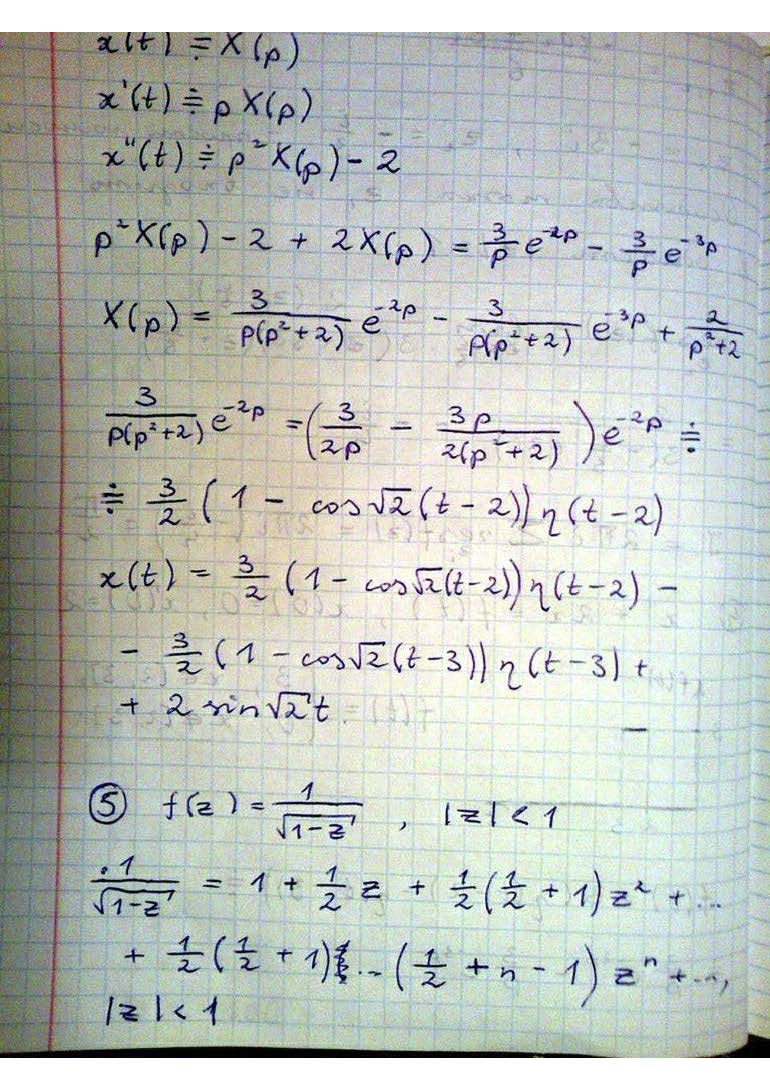 x(t) ≓ X(p)
x'(t) ≓ p X(p)
x''(t) ≓ p² X(p) - 2
p² X(p) - 2 + 2X(p) = 3/p e^{-2p} - 3/p e^{-3p}
X(p) = 3/(p(p²+2)) e^{-2p} - 3/(p(p²+2)) e^{-3p} + 2/(p²+2)
3/(p(p²+2)) e^{-2p} = (3/(2p) - 3p/(2(p²+2))) e^{-2p} ≓
≓ 3/2 (1 - cos√2(t-2)) η(t-2)
x(t) = 3/2 (1 - cos√2(t-2)) η(t-2) -
- 3/2 (1 - cos√2(t-3)) η(t-3) +
+ 2 sin√2t
⑤ f(z) = 1/√(1-z) , |z| < 1
1/√(1-z) = 1 + 1/2 z + 1/2 (1/2 + 1) z² + ...
+ 1/2 (1/2 + 1) ... (1/2 + n - 1) zⁿ + ...,
|z| < 1